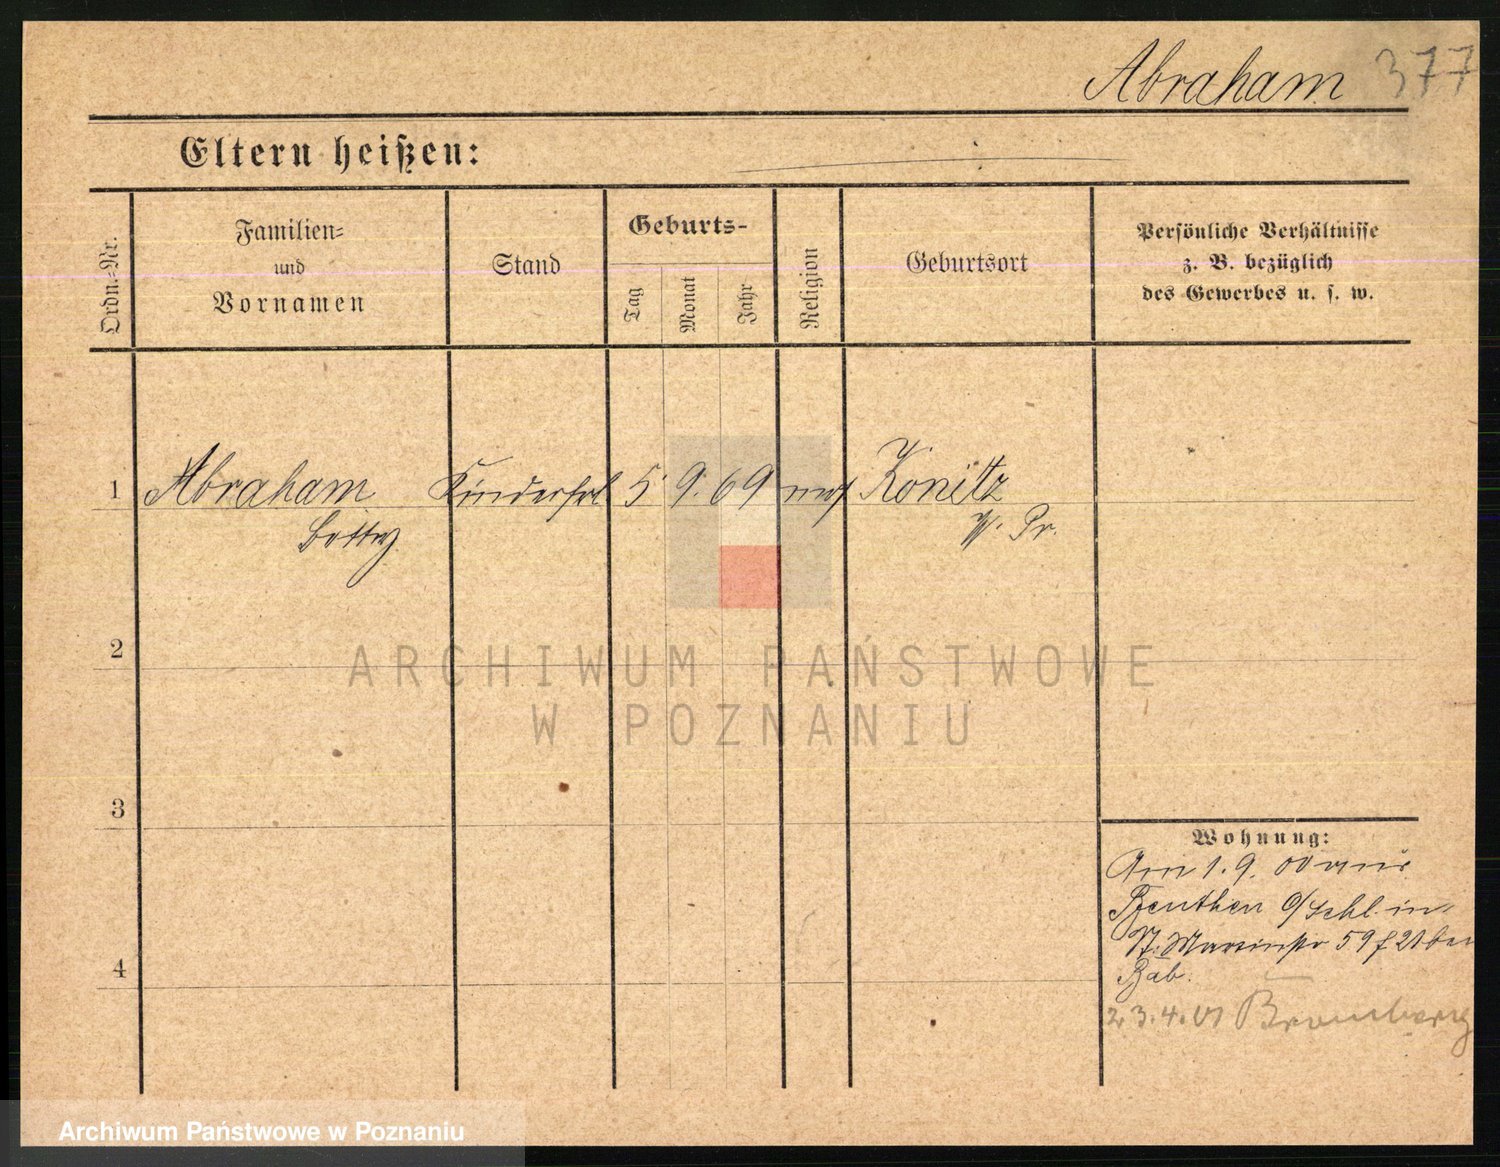 Abraham 377
Eltern heißen:
Ordn.-Nr.
Familien-
und
Vornamen
Stand
Geburts-
Tag
Monat
Jahr
Religion
Geburtsort
Persönliche Verhältnisse
z. B. bezüglich
des Gewerbes u. s. w.
1 Abraham Kinderfrl 5. 9. 69 mos Konitz
Betty W. Pr.
2
ARCHIWUM PAŃSTWOWE
W POZNANIU
3
Wohnung:
Am 1. 9. 00 aus
Beuthen O/Schl. in
St. Martinstr 59 bei
Bab.
4
23.4.01 Bromberg
Archiwum Państwowe w Poznaniu